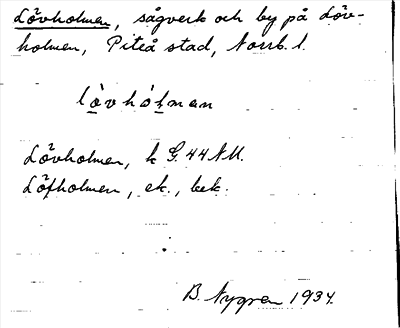 Lövholmen, sågverk och by på Löv-
holmen, Piteå stad, Norrb. l.
lò̱vhóḻmen
Lövholmen, k G. 44 NU.
Löfholmen, ek., bek.
B. Nygren 1934.